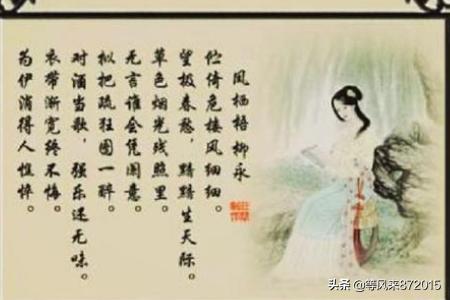 凤栖梧 柳永
伫倚危楼风细细。
望极春愁，黯黯生天际。
草色烟光残照里。
无言谁会凭阑意。
拟把疏狂图一醉。
对酒当歌，强乐还无味。
衣带渐宽终不悔。
为伊消得人憔悴。
头条 @等风来872015